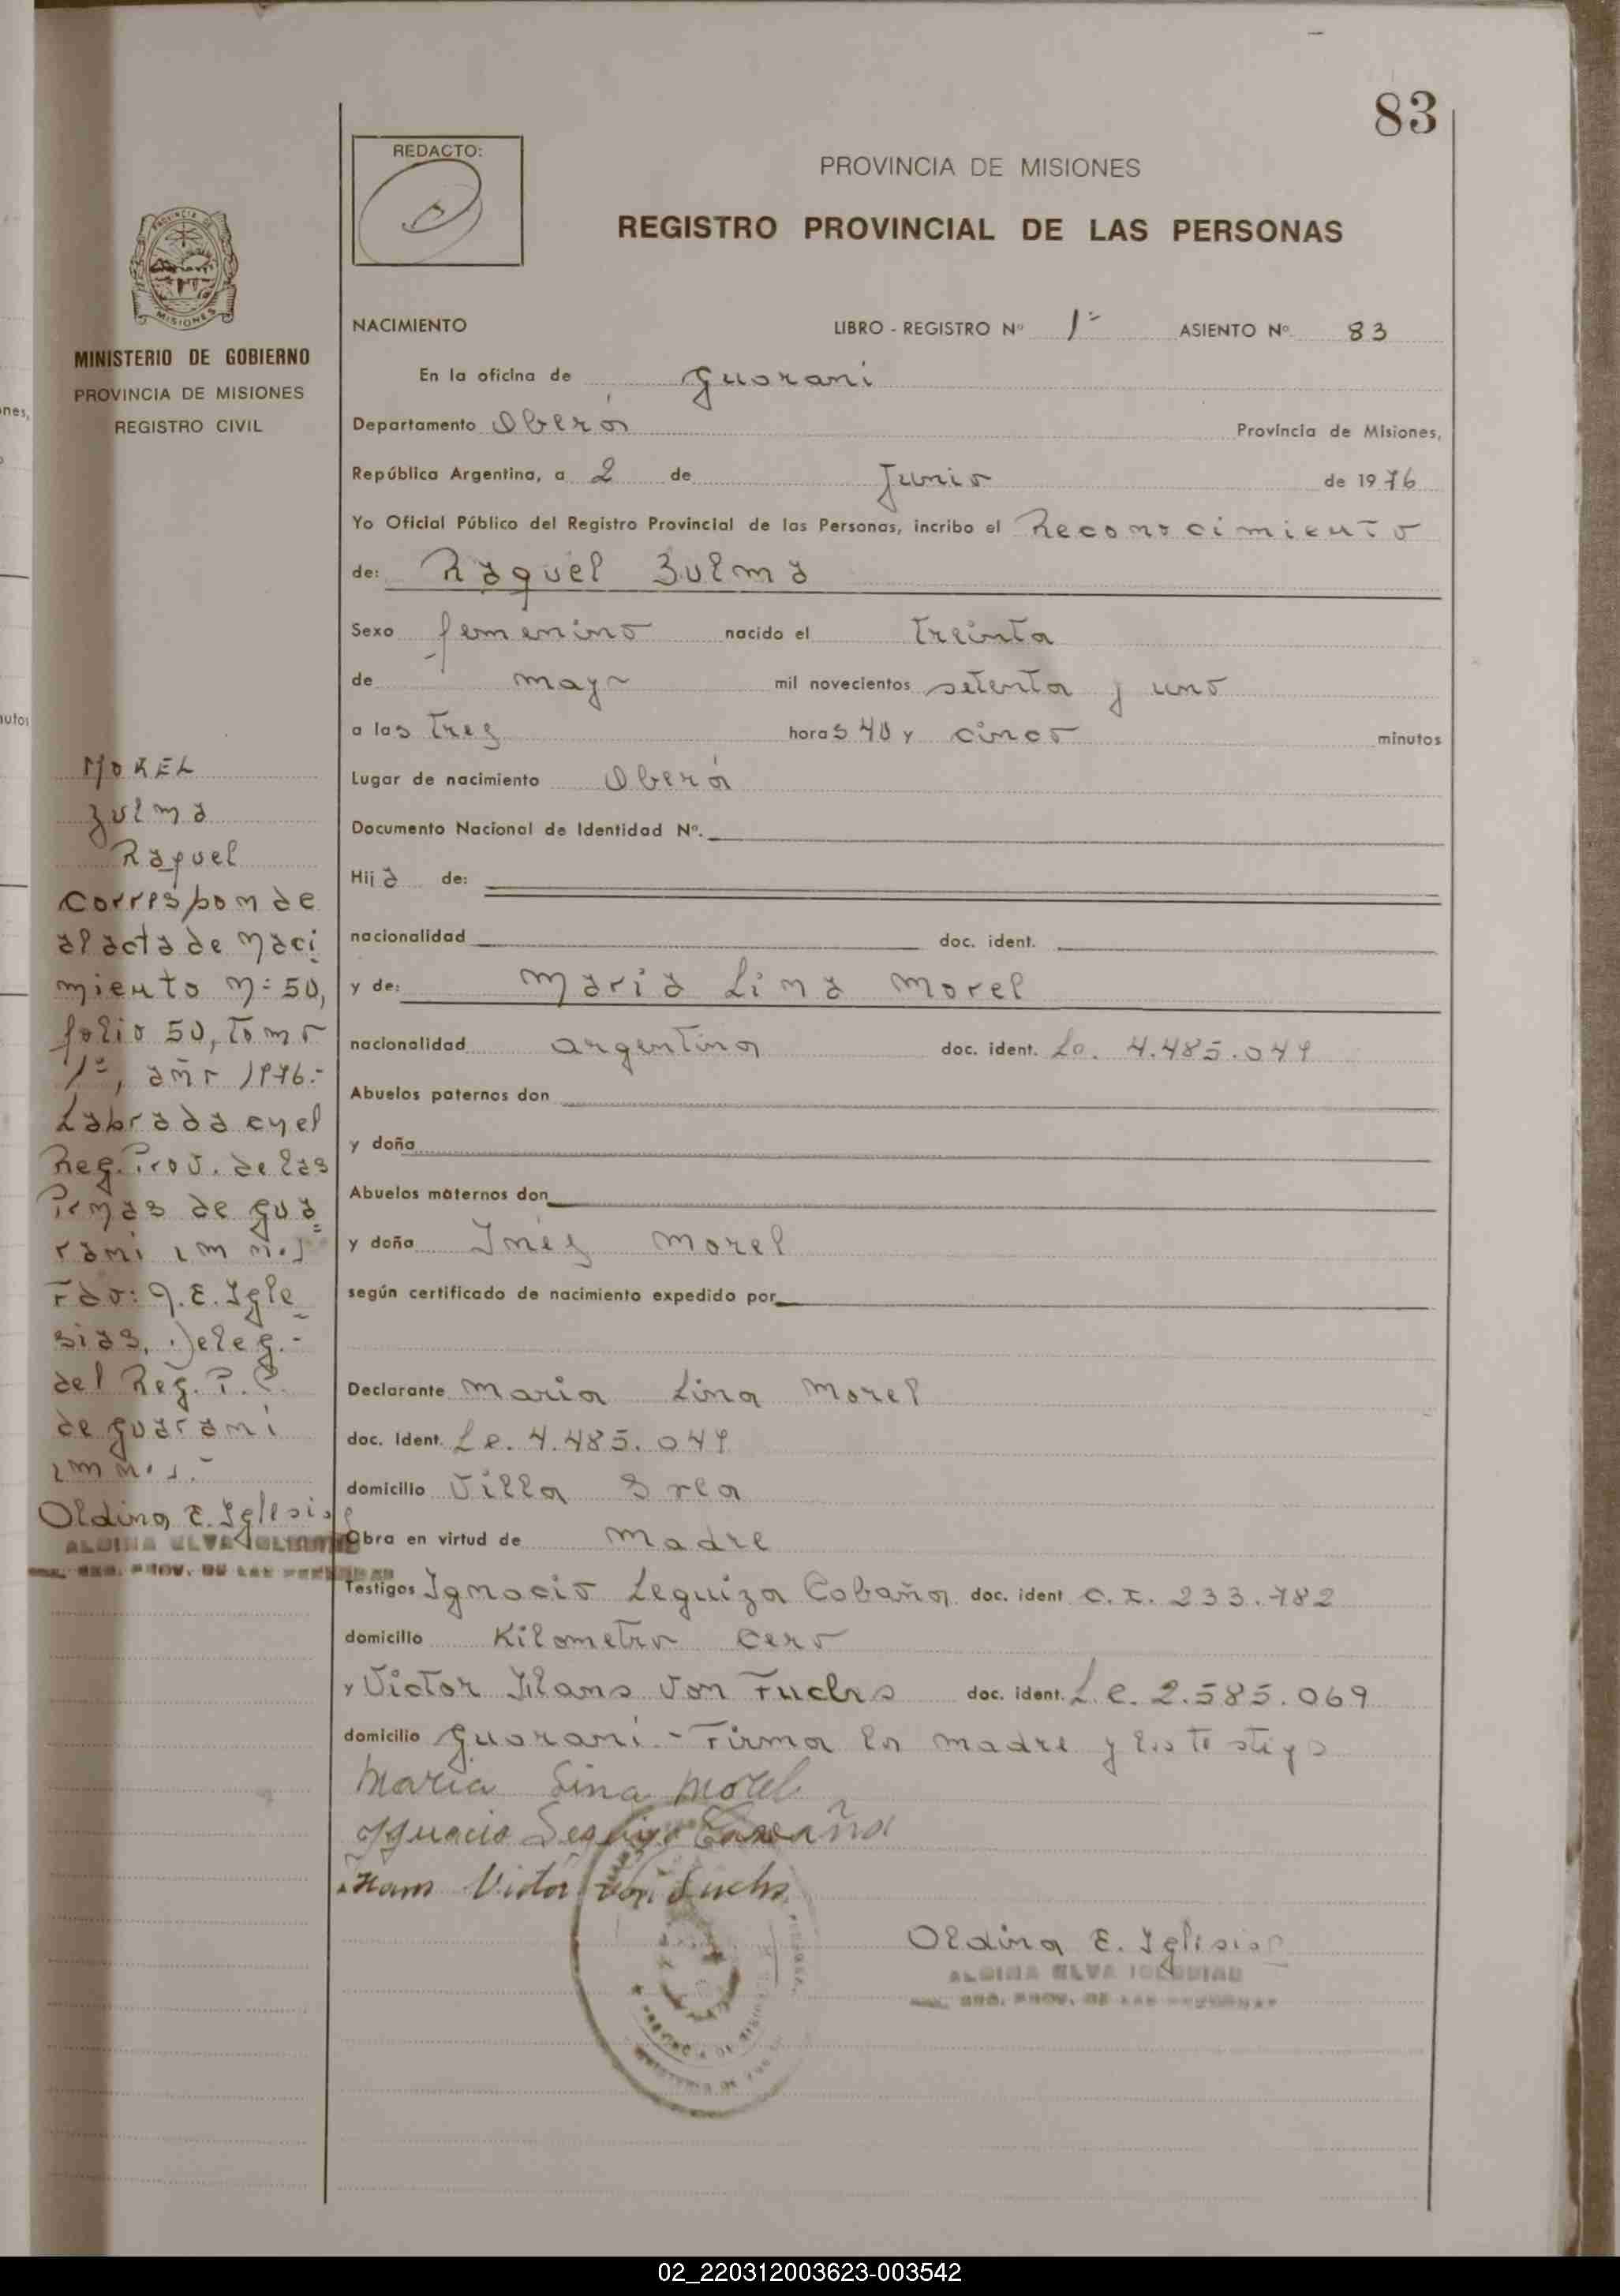 83
REDACTO:
PROVINCIA DE MISIONES
REGISTRO PROVINCIAL DE LAS PERSONAS
MISIONES
MINISTERIO DE GOBIERNO
PROVINCIA DE MISIONES
REGISTRO CIVIL
NACIMIENTO LIBRO - REGISTRO Nº 1º ASIENTO Nº 83
En la oficina de Guarani
Departamento Oberá Provincia de Misiones,
República Argentina, a 2 de Junio de 1976
Yo Oficial Público del Registro Provincial de las Personas, incribo el Reconocimiento
de: Raquel Zulma
Sexo femenino nacido el treinta
de mayo mil novecientos setenta y uno
a las tres horas 40 y cinco minutos
Lugar de nacimiento Oberá
Documento Nacional de Identidad Nº.
Hija de:
nacionalidad doc. ident.
y de: Maria Lina Morel
nacionalidad argentina doc. ident. Lc. 4.485.049
Abuelos paternos don
y doña
Abuelos maternos don
y doña Inéz Morel
según certificado de nacimiento expedido por
Declarante Maria Lina Morel
doc. ident. Lc. 4.485.049
domicilio Villa
Obra en virtud de Madre
Testigos Ignacio Leguiza Cabaña doc. ident C.I. 233.782
domicilio Kilometro cero
y Victor Hans Von Fuchs doc. ident. L.e. 2.585.069
domicilio Guarani.- Firma la madre y los testigo
Maria Lina Morel
Ignacio Leguiza Cabaña
Hans Victor von Fuchs
Oldina E. Iglesias
MOREL
Zulma
Raquel
Corresponde
al acta de naci
miento Nº 50,
folio 50, tomo
1º, año 1976.-
Labrada en el
Reg. Prov. de las
Prnas de Gua
rani
Fdo: O.E. Igle
sias, Deleg.-
del Reg. P.P.
de Guarani
Oldina E. Iglesias
02_220312003623-003542